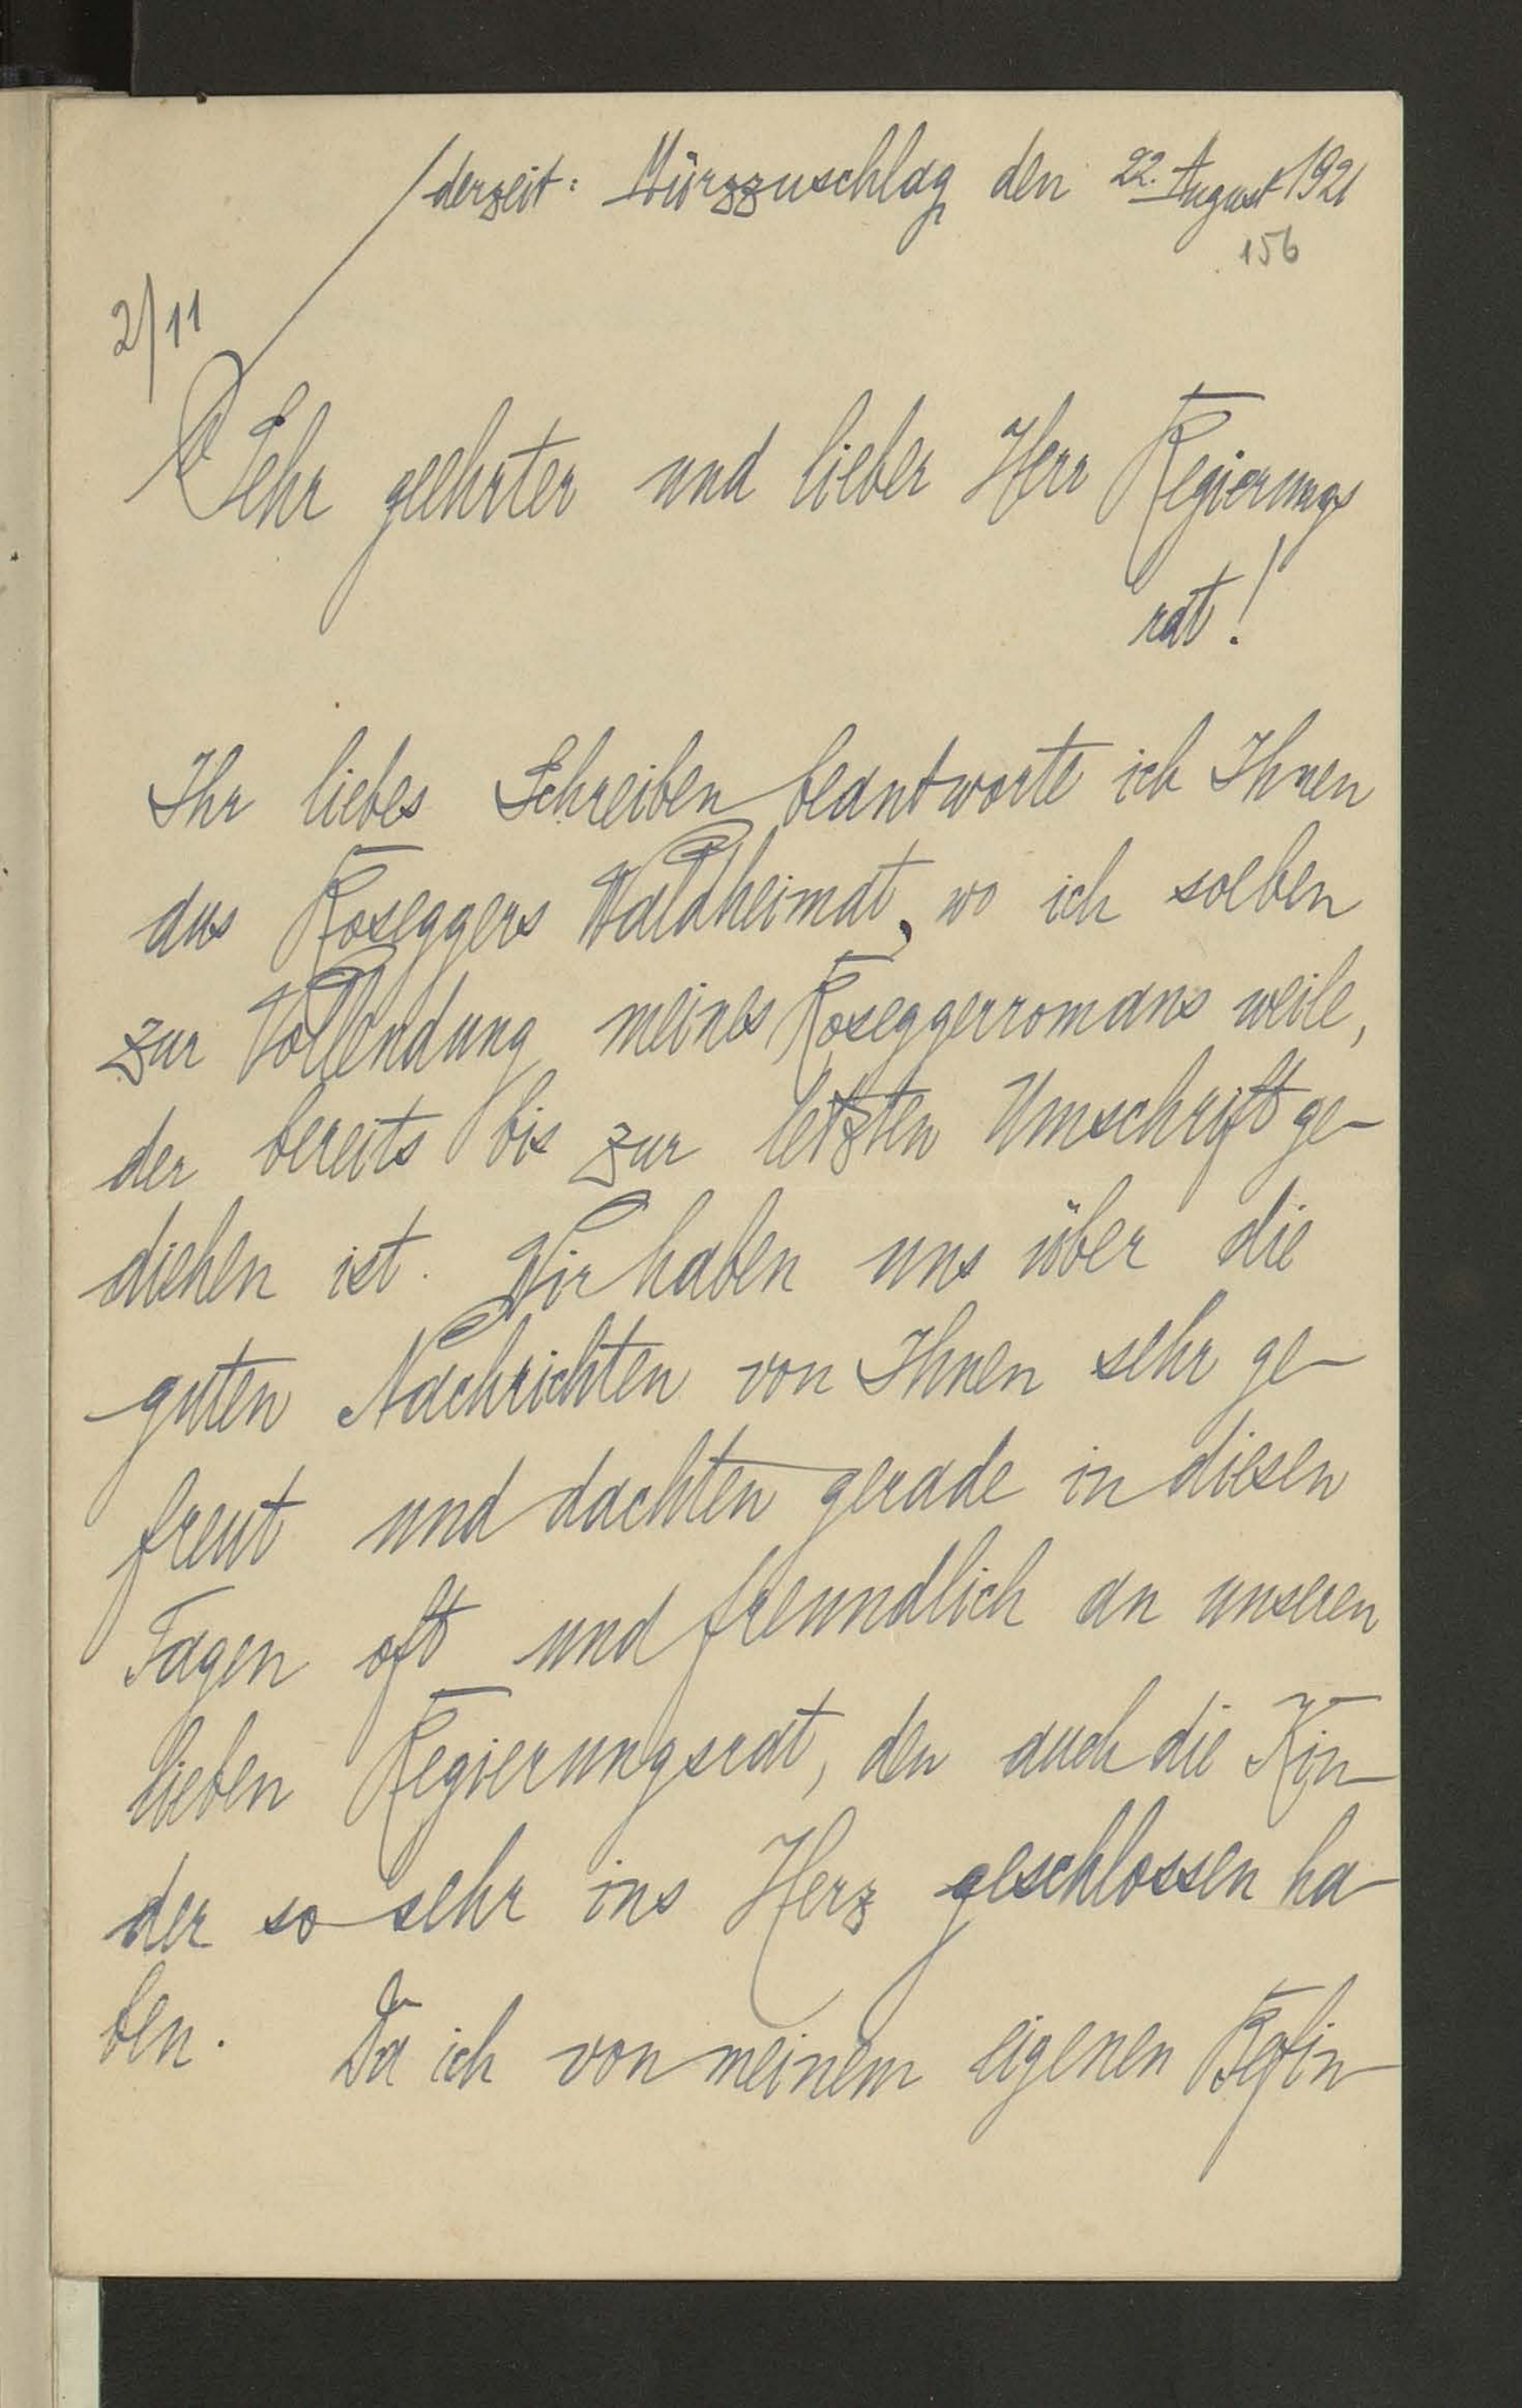 derzeit: Mürzzuschlag den 22. August 1921
156
2/11
Sehr geehrter und lieber Herr Regierungs
rat!
Ihr liebes Schreiben beantworte ich Ihnen
aus Roseggers Waldheimat, wo ich soeben
zur Vollendung meines Roseggerromans weile,
der bereits bis zur letzten Umschrift ge-
diehen ist. Wir haben uns über die
guten Nachrichten von Ihnen sehr ge-
freut und dachten gerade in diesen
Tagen oft und freundlich an unseren
lieben Regierungsrat, den auch die Kin-
der so sehr ins Herz geschlossen ha-
ben. Da ich von meinem eigenen Befin-